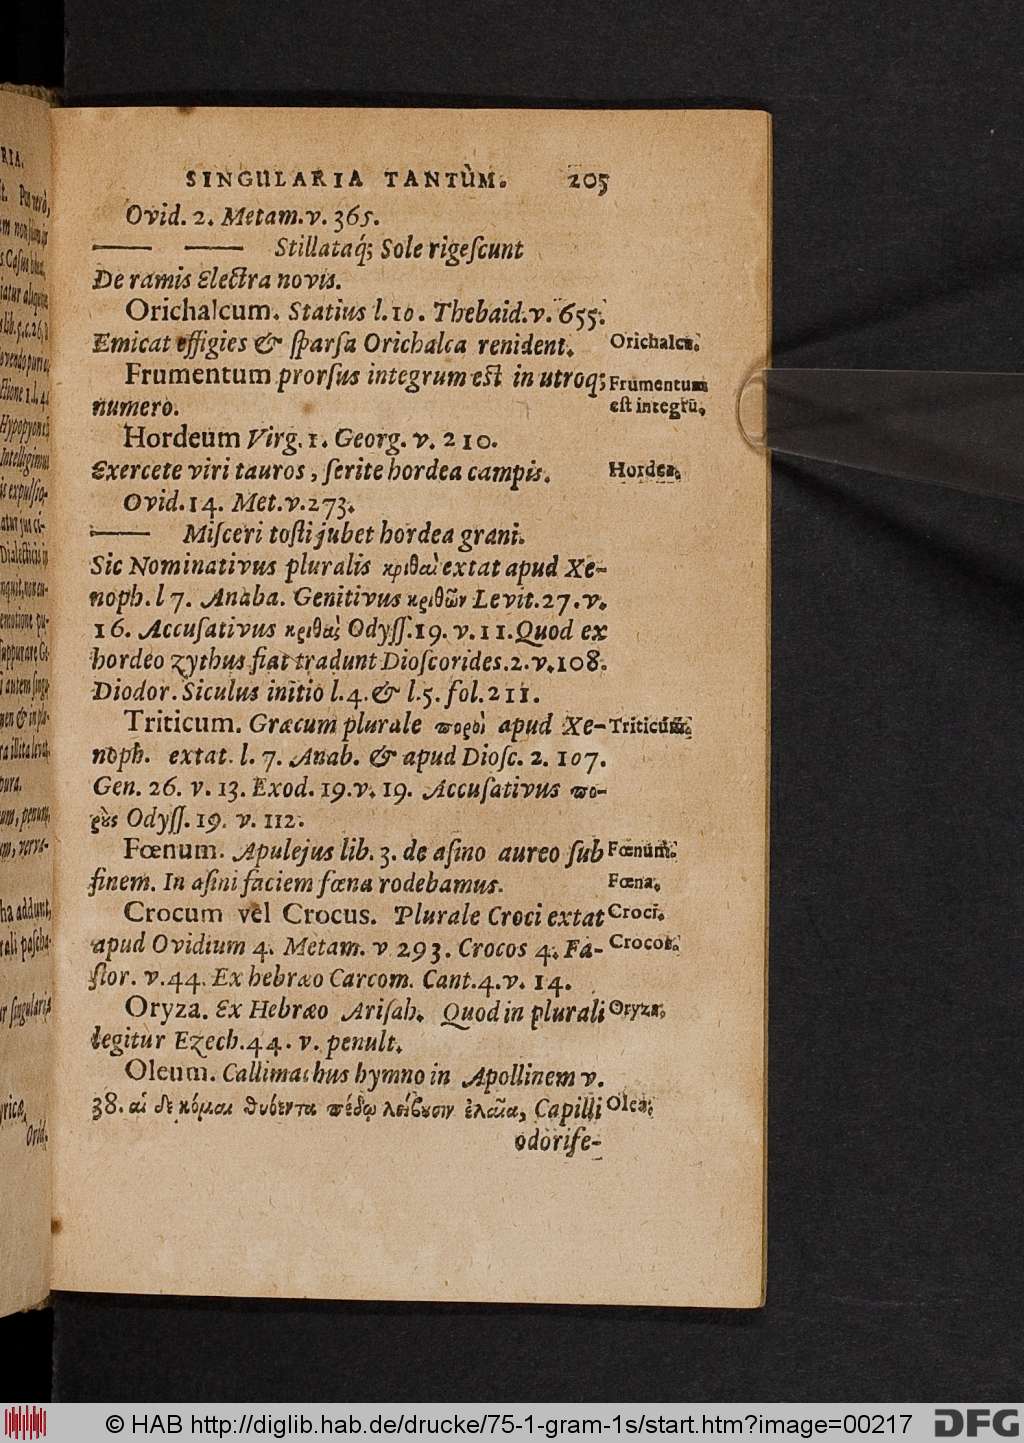 SINGULARIA TANTÙM. 205
Ovid. 2. Metam. v. 365.
Stillataq́; Sole rigeſcunt
De ramis Electra novis.
Orichalcum. Statius l. 10. Thebaid. v. 655.
Emicat effigies & ſparſa Orichalca renident. Orichalca.
Frumentum prorſus integrum est in utroq; Frumentum
numero. eſt integrū.
Hordeum Virg. 1. Georg. v. 210.
Exercete viri tauros, ſerite hordea campis. Hordea.
Ovid. 14. Met. v. 273.
Miſceri toſti jubet hordea grani.
Sic Nominativus pluralis κριθαὶ extat apud Xe-
noph. l 7. Anaba. Genitivus κριθῶν Levit. 27. v.
16. Accuſativus κριθὰς Odyſſ. 19. v. 11. Quod ex
hordeo zythus fiat tradunt Dioſcorides. 2. v. 108.
Diodor. Siculus initio l. 4. & l. 5. fol. 211.
Triticum. Græcum plurale ϖυροὶ apud Xe- Triticum.
noph. extat. l. 7. Anab. & apud Dioſc. 2. 107.
Gen. 26. v. 13. Exod. 19. v. 19. Accuſativus ϖυ-
ροὺς Odyſſ. 19. v. 112.
Fœnum. Apulejus lib. 3. de aſino aureo ſub Fœnum.
finem. In aſini faciem fœna rodebamus. Fœna.
Crocum vel Crocus. Plurale Croci extat Croci.
apud Ovidium 4. Metam. v 293. Crocos 4. Fa- Crocos.
ſtor. v. 44. Ex hebræo Carcom. Cant. 4. v. 14.
Oryza. Ex Hebræo Ariſah. Quod in plurali Oryza.
legitur Ezech. 44. v. penult.
Oleum. Callimachus hymno in Apollinem v.
38. αἱ δὲ κόμαι θυόεντα πέδῳ λείβουσιν ἐλαῖα, Capilli Olea.
odorife-
© HAB http://diglib.hab.de/drucke/75-1-gram-1s/start.htm?image=00217 DFG